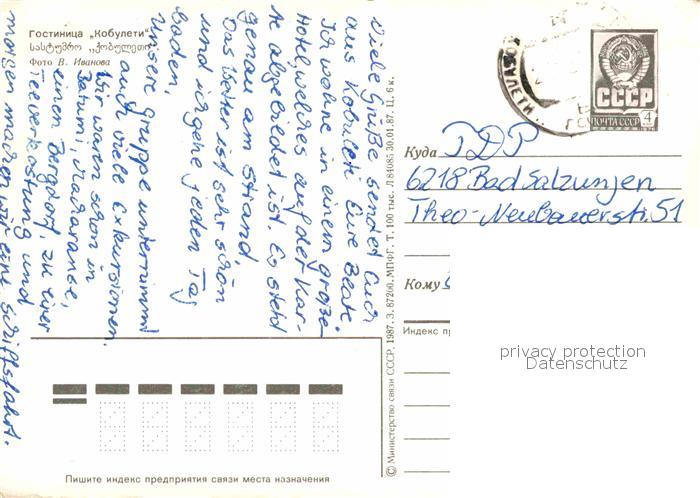 Гостиница „Кобулети"
სასტუმრო „ქობულეთი"
Фото В. Иванова
Viele Grüße sendet Euch
aus Kobuleti Eure Beate.
Ich wohne in einem große
Hotel, welches auf der Kar-
te abgebildet ist. Es steht
genau am Strand.
Das Wetter ist sehr schön
und ich gehe jeden Tag
baden.
Unsere Gruppe unternimmt
auch viele Exkursionen.
Wir waren schon in
Batumi,
einem Bergdorf, zu einer
Teeverkostung und
morgen machen wir eine Schiffsfahrt.
© Министерство связи СССР, 1987. З. 87200, МПФГ. Т. 100 тыс. Л 84085 30.01.87. Ц. 6 к.
СССР
ПОЧТА СССР 4
Куда TDP
6218 Bad Salzungen
Theo-Neubauerstr. 51
Кому
Индекс пр
privacy protection
Datenschutz
Пишите индекс предприятия связи места назначения